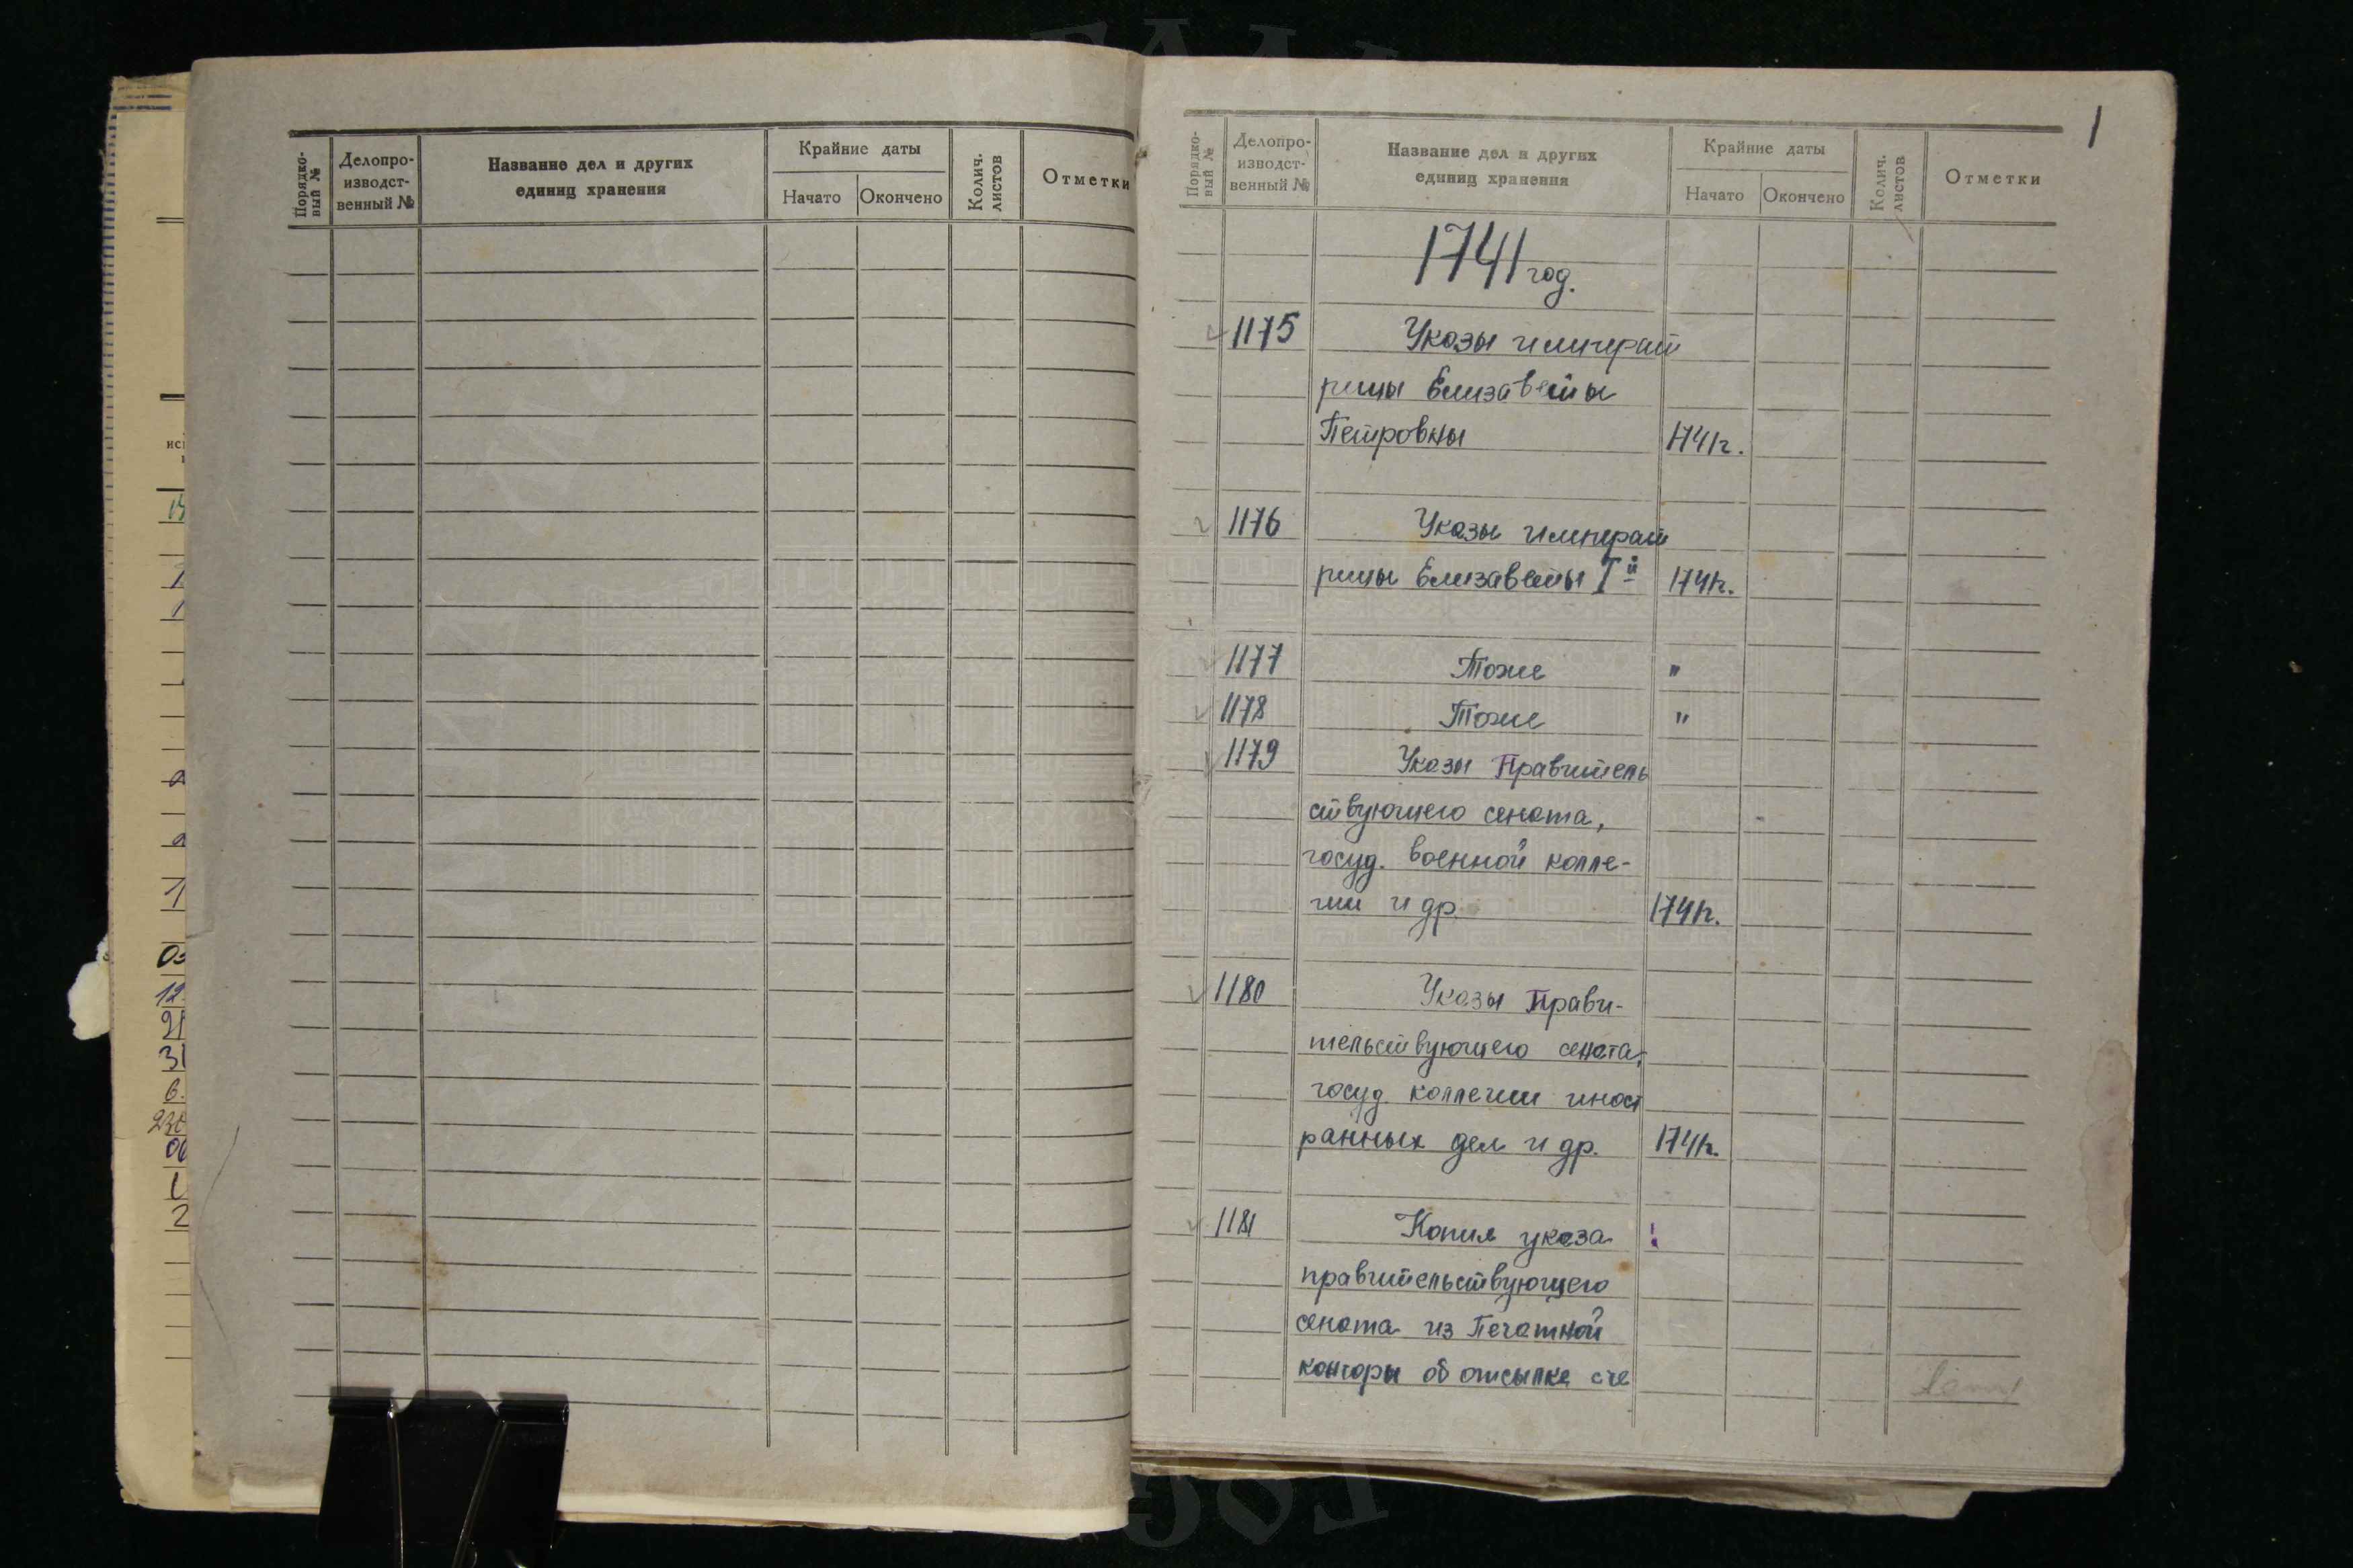 Порядко-
вый №
Делопро-
изводст-
венный №
Название дел и других
единиц хранения
Крайние даты
Начато
Окончено
Колич.
листов
Отметки
1
Порядко-
вый №
Делопро-
изводст-
венный №
Название дел и других
единиц хранения
Крайние даты
Начато
Окончено
Колич.
листов
Отметки
1741 год.
1175 Указы императ
рицы Елизаветы
Петровны 1741г.
1176 Указы императ
рицы Елизаветы Iй 1741г.
1177 Тоже "
1178 Тоже "
1179 Указы Правитель
ствующего сената,
госуд. военной колле-
гии и др. 1741г.
1180 Указы Прави-
тельствующего сената,
госуд. коллегии иност
ранных дел и др. 1741г.
1181 Копия указа
правительствующего
сената из Печатной
конторы об отсылке сче